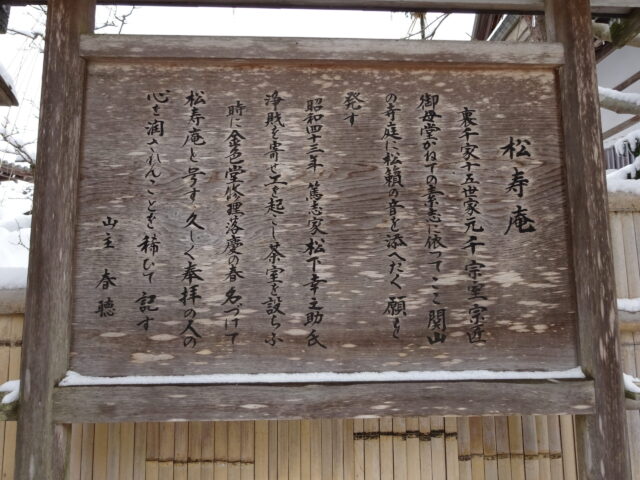 松寿庵
裏千家十五世家元千宗室宗匠
御母堂かねての素志に依つてここ関山
の寺庭に松籟の音を添へたく願まを
発す
昭和四十三年 篤志家松下幸之助氏
浄財を寄せ工を起こし茶室を設らふ
時に金色堂修理落慶の春 名づけて
松寿庵と号す 久しく奉拝の人の
心を潤されんことを 稀むて 記す
山主 春聴